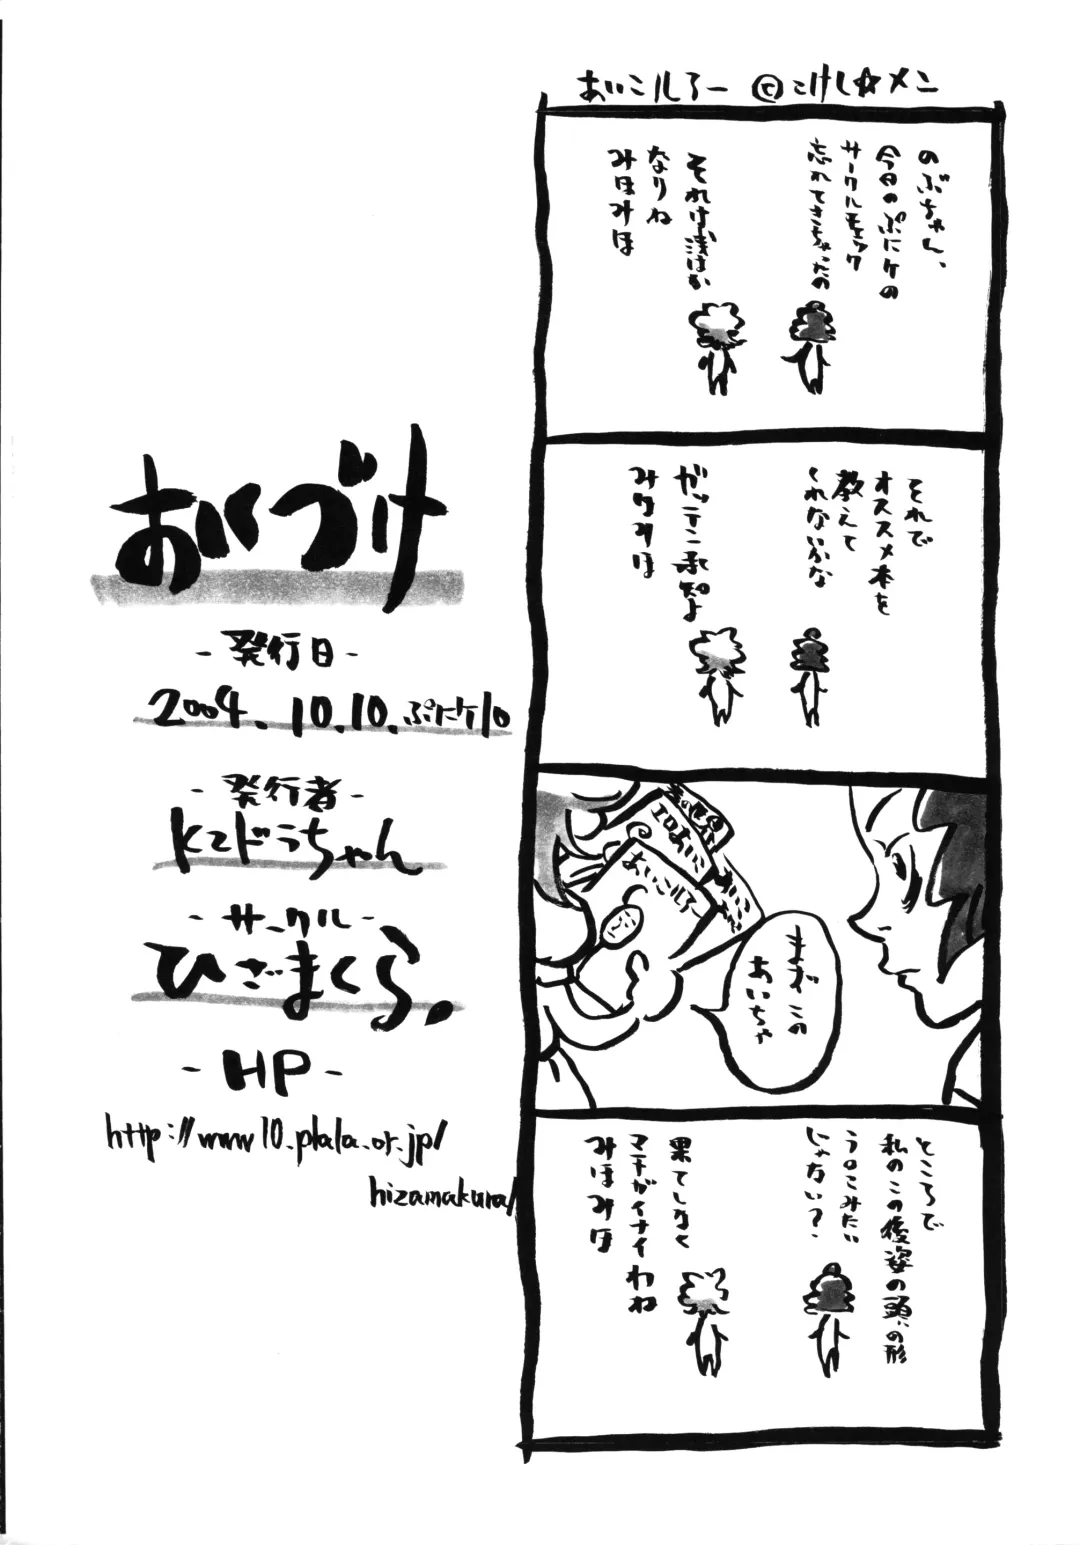 あいこルろー ©こけし☆メン
のぶちゃん、
今日のぷにケの
サークルチェック
忘れてきちゃったの
それは浅はか
なりね
みほみほ
それで
オススメ本を
教えて
くれないかな
ガッテン承知よ
みほみほ
あいこルろー
まずこの
あいちゃ
ところで
私のこの後姿の頭の形
う○こみたい
じゃない?
果てしなく
マチガイナイわね
みほみほ
あいづけ
-発行日-
2004.10.10.ぷにケ10
-発行者-
Kzドラちゃん
-サークル-
ひざまくら。
-HP-
http://www10.plala.or.jp/
hizamakura/